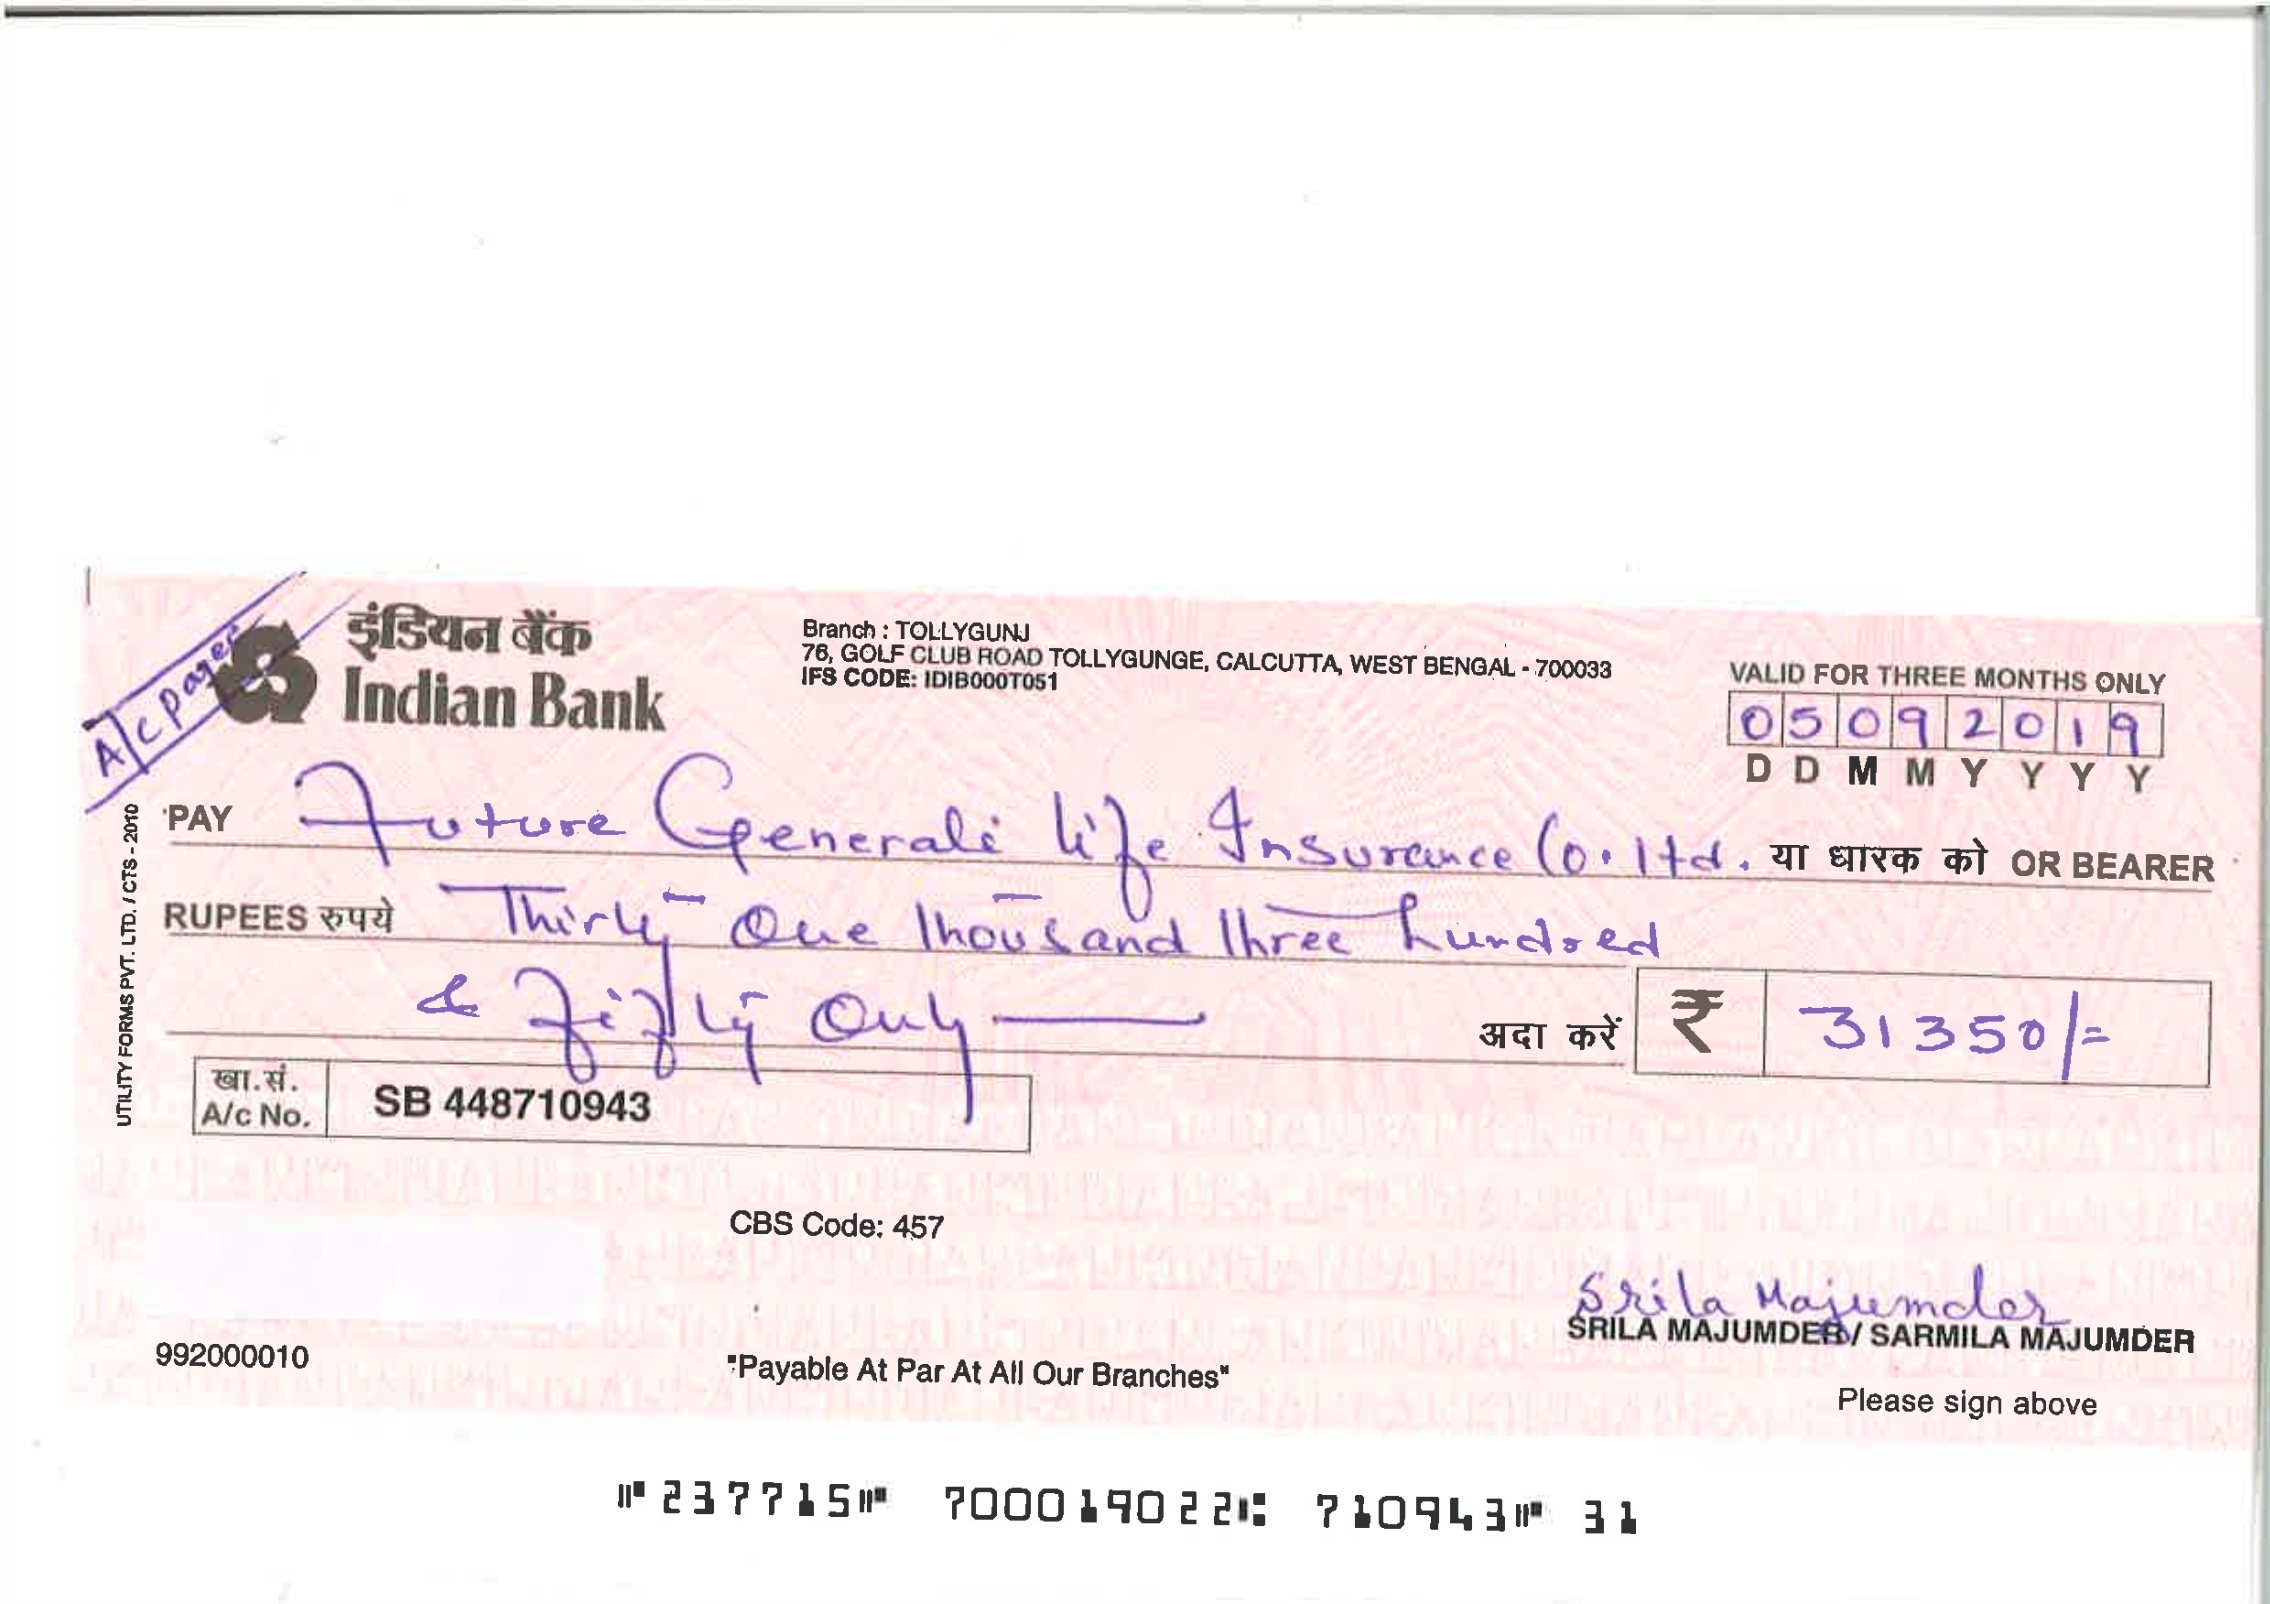 A/c payee
इंडियन बैंक
Indian Bank
Branch : TOLLYGUNJ
76, GOLF CLUB ROAD TOLLYGUNGE, CALCUTTA, WEST BENGAL - 700033
IFS CODE: IDIB000T051
VALID FOR THREE MONTHS ONLY
05092019
D D M M Y Y Y Y
PAY Future Generali life Insurance Co. ltd. या धारक को OR BEARER
RUPEES रुपये Thirty One thousand three hundred
& fifty Only
अदा करें ₹ 31350/=
खा.सं.
A/c No. SB 448710943
UTILITY FORMS PVT. LTD. / CTS - 2010
CBS Code: 457
Srila Majumder
SRILA MAJUMDER/ SARMILA MAJUMDER
992000010
"Payable At Par At All Our Branches"
Please sign above
⑈237715⑈ 700019022⑆ 710943⑈ 31